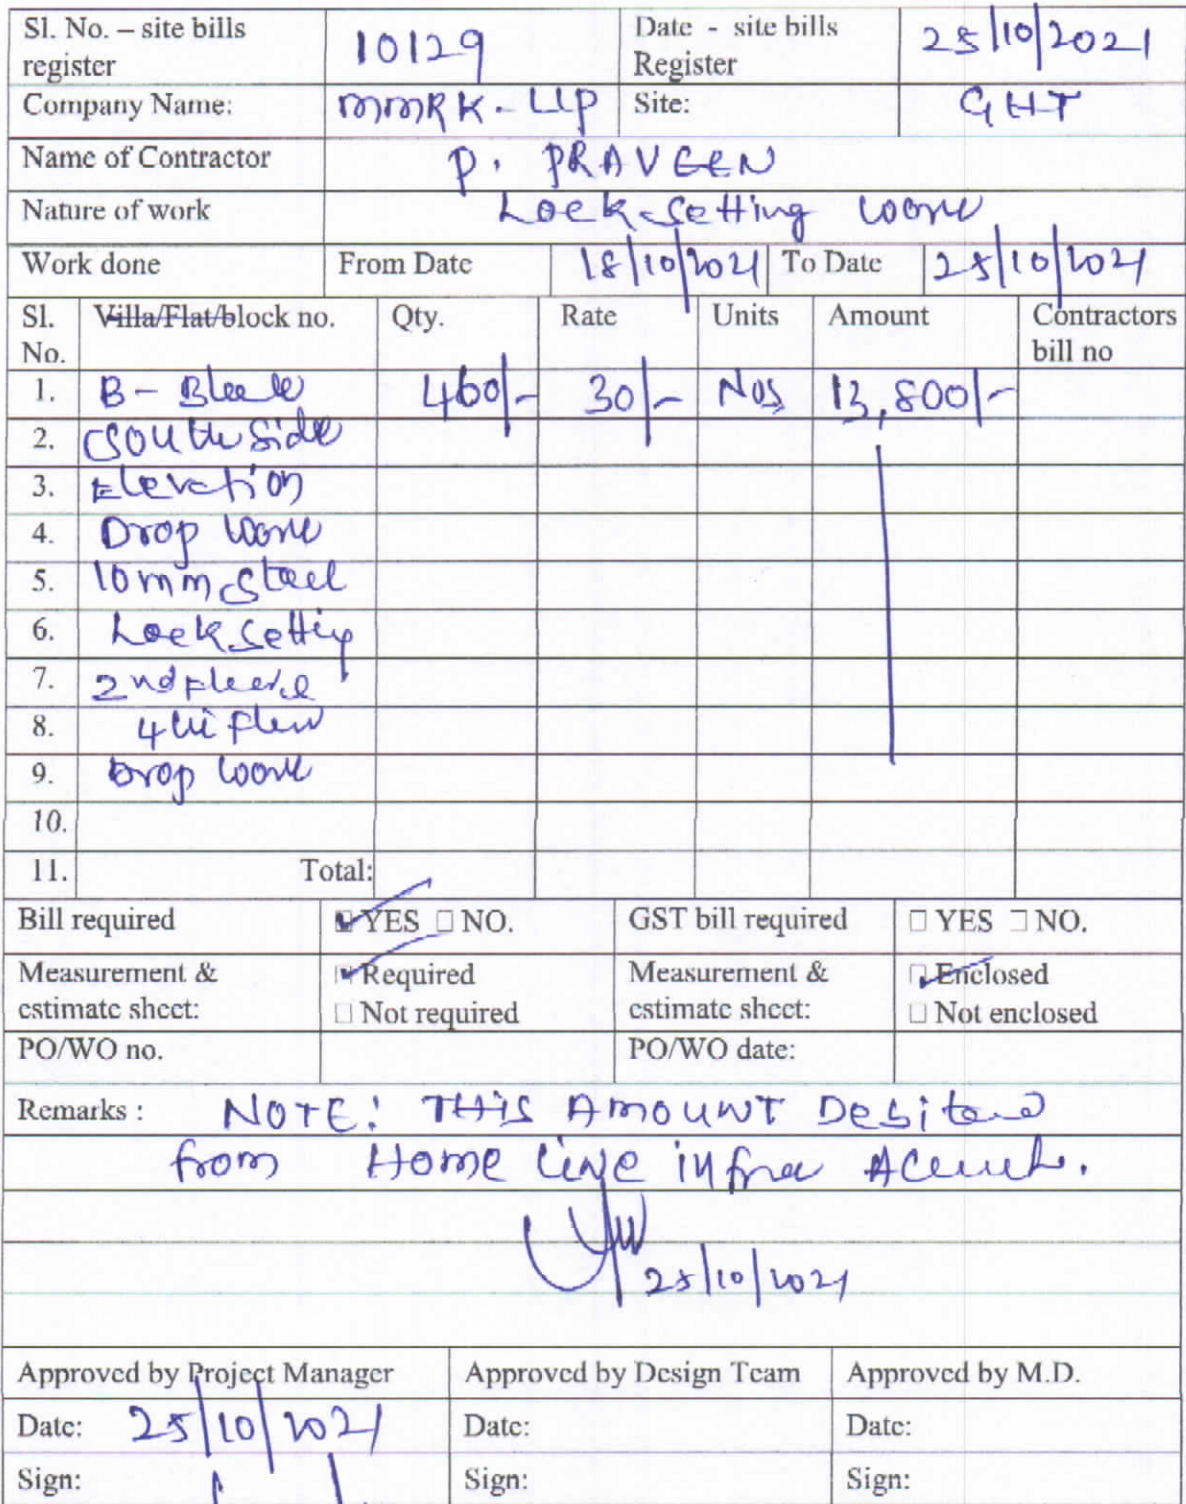 Sl. No. – site bills register 10129 Date - site bills Register 25/10/2021
Company Name: MMRK-LLP Site: GHT
Name of Contractor P. PRAVEEN
Nature of work Lock-setting work
Work done From Date 18/10/2021 To Date 25/10/2021
Sl. No. Villa/Flat/block no. Qty. Rate Units Amount Contractors bill no
1. B - Block 460/- 30/- Nos 13,800/-
2. South side
3. Elevation
4. Drop work
5. 10mm steel
6. Lock setting
7. 2nd
8. 4th
9. Drop work
10.
11. Total:
Bill required YES NO. GST bill required YES NO.
Measurement & estimate sheet: Required Not required Measurement & estimate sheet: Enclosed Not enclosed
PO/WO no. PO/WO date:
Remarks : NOTE: THIS AMOUNT Debited
from Home Line infra
25/10/2021
Approved by Project Manager Approved by Design Team Approved by M.D.
Date: 25/10/2021 Date: Date:
Sign: Sign: Sign: